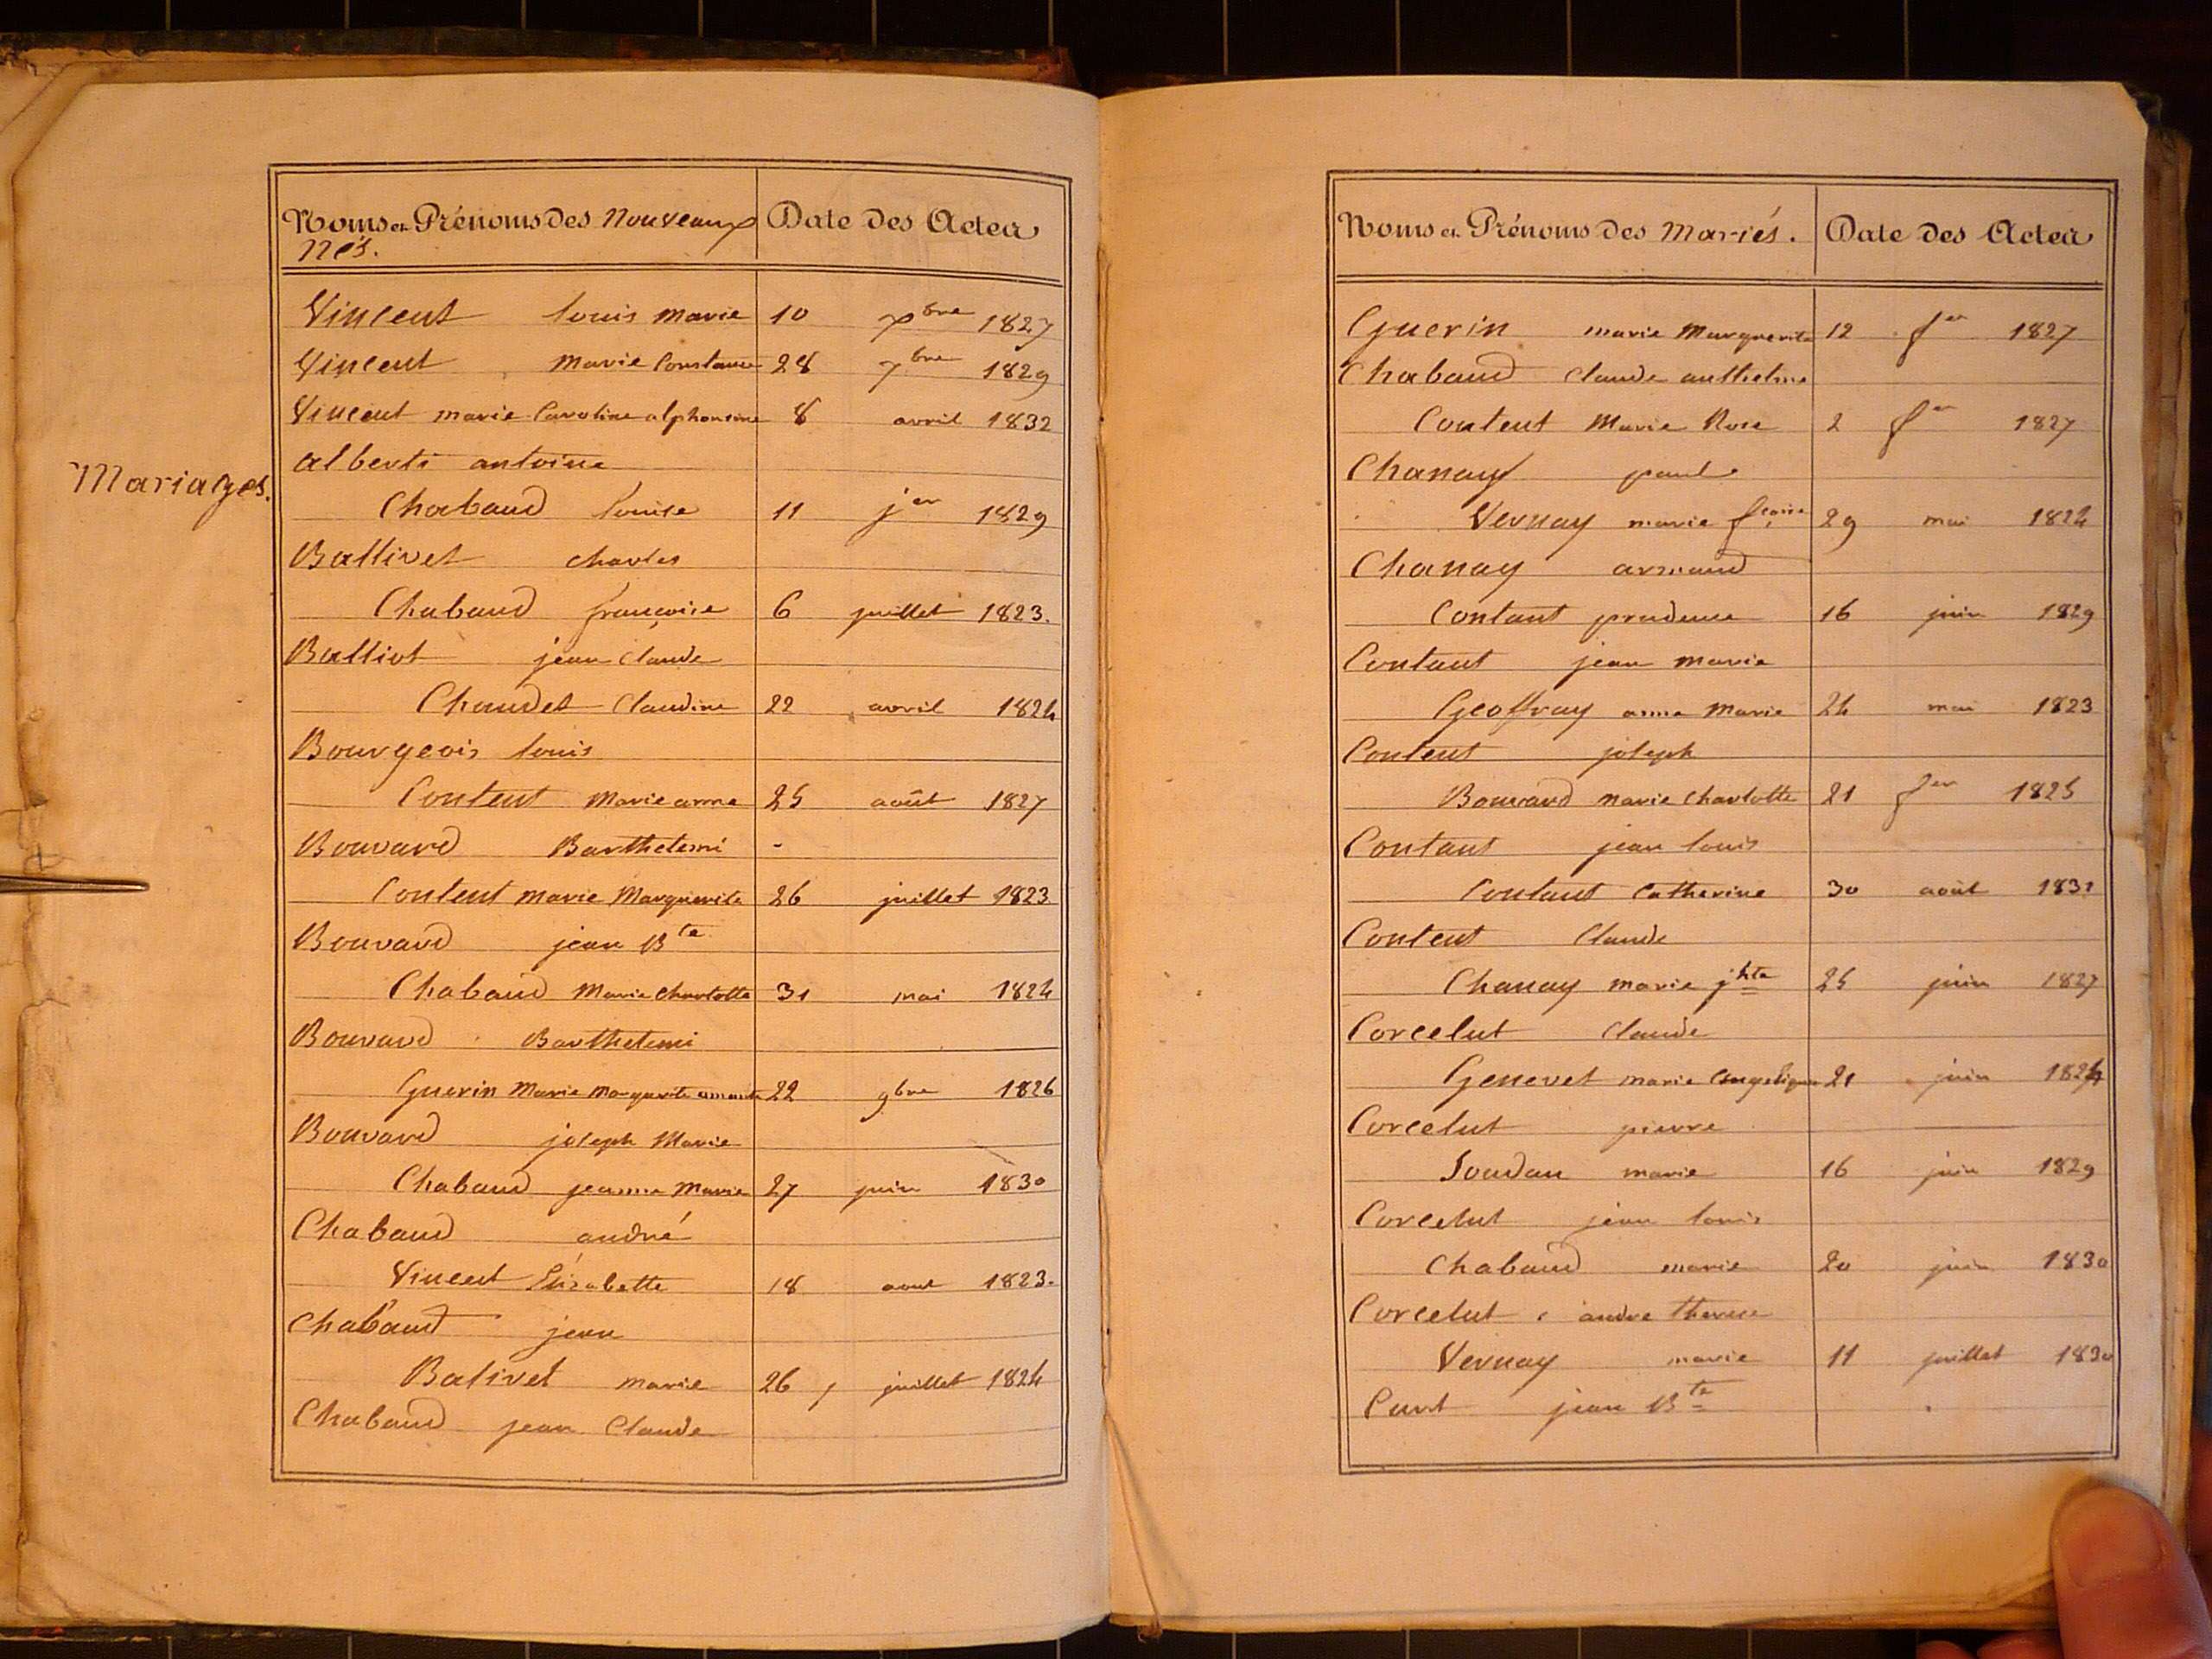 Noms et Prénoms des Nouveaux Date des Actes
Nés.
Vincent louis marie 10 xbre 1827
Vincent marie Constance 28 7bre 1829
Vincent marie Caroline alphonsine 8 avril 1832
Mariages.
Alberti antoine
Chabaud louise 11 jer 1829
Ballivet charles
Chabaud françoise 6 juillet 1823.
Balliot jean claude
Chaudet Claudine 22 avril 1824
Bourgeois louis
Content marie anne 25 août 1827
Bouvard Barthelemi -
Content marie Marguerite 26 juillet 1823
Bouvard jean Bte
Chabaud Marie Charlotte 31 mai 1824
Bouvard Barthelemi
Guerin Marie Marguerite 22 9bre 1826
Bouvard joseph Marie
Chabaud jeanne Marie 27 juin 1830
Chabaud andré
Vincent Elizabette 18 aout 1823.
Chabaud jean
Balivet marie 26 juillet 1824
Chabaud jean Claude
Noms et Prénoms des Mariés. Date des Actes
Guerin marie Marguerite 12 fer 1827
Chabaud Claude anthelme
Content Marie Rose 2 fer 1827
Chanay paul
Vernay marie fçoise 29 mai 1824
Chanay armand
Contant prudence 16 juin 1829
Contant jean marie
Geoffray anne Marie 24 mai 1823
Content joseph
Bouvard marie Charlotte 21 fer 1825
Contant jean louis
Contant Catherine 30 août 1831
Content Claude
Chanay marie jhte 25 juin 1827
Corcelut Claude
Genevet marie Angelique 21 juin 1824
Corcelut pierre
Joudan marie 16 juin 1829
Corcelut jean louis
Chabaud marie 20 juin 1830
Corcelut andre therese
Vernay marie 11 juillet 1830
Curt jean Bte